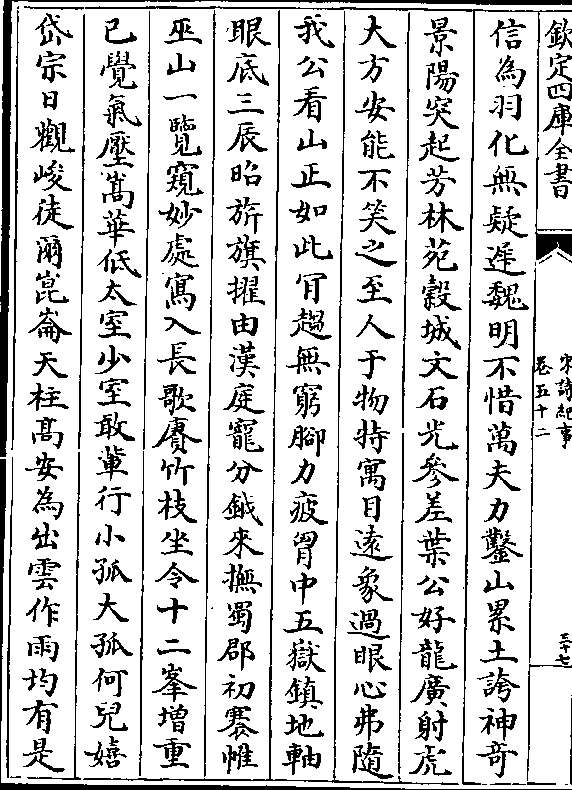 欽定四庫全書
宋詩紀事
卷五十二
三十七
信為羽化無疑遲魏明不惜萬夫力鑿山累土誇神奇
景陽突起芳林苑穀城文石光參差葉公好龍廣射虎
大方安能不笑之至人于物特寓目遠象過眼心弗隨
我公看山正如此肎趨無窮腳力疲胷中五嶽鎮地軸
眼底三辰昭旂旗擢由漢庭寵分鉞來撫蜀郡初褰帷
巫山一覽窺妙處寫入長歌賡竹枝坐令十二峯增重
已覺氣壓嵩華低太室少室敢輩行小孤大孤何兒嬉
岱宗日觀峻徒爾崑崙天柱髙安為出雲作雨均有是